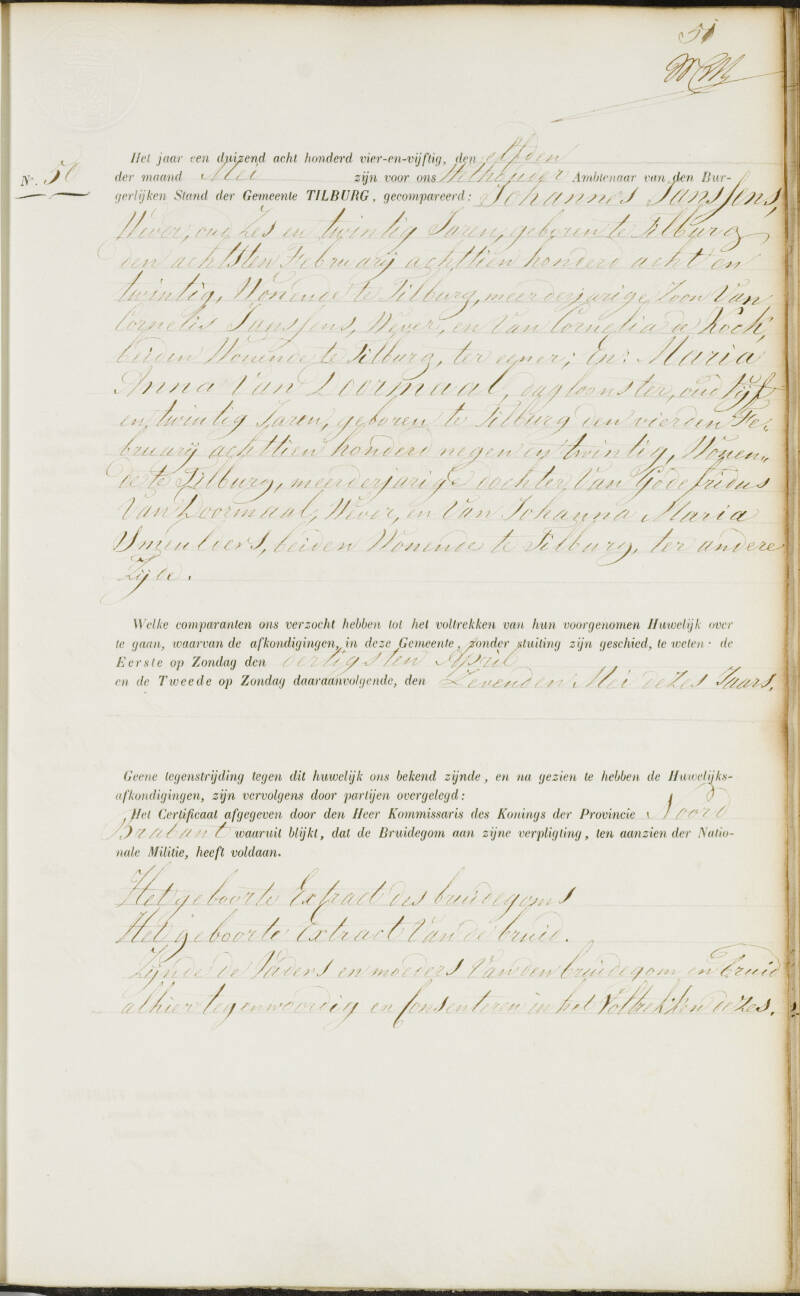 51
Het jaar een duizend acht honderd vier-en-vijftig, den elfden
N.r 50
der maand Mei zijn voor ons Wethouder Ambtenaar van den Bur-
gerlijken Stand der Gemeente TILBURG, gecompareerd: Johannes Janssens,
Wever, oud Zes en twintig Jaren, geboren te Tilburg
den achtsten February achttien honderd acht en
twintig, Wonende te Tilburg, meerderjarige Zoon Van
Cornelis Janssens, Wever, en Van Cornelia de Kock,
beiden Wonende te Tilburg, ter eener; En: Maria
Anna Van Doormaal, dagloonster, oud Vijf
en twintig Jaren, geboren te Tilburg den vierden Fe-
bruary achttien honderd negen en twintig, Wonen-
de te Tilburg, meerderjarige dochter Van Godefridus
Van Doormaal, Wever, en Van Johanna Maria
Smeulders, beiden Wonende te Tilburg, ter andere
Zijde.
Welke comparanten ons verzocht hebben tot het voltrekken van hun voorgenomen Huwelijk over
te gaan, waarvan de afkondigingen, in deze Gemeente, zonder stuiting zijn geschied, te weten: de
Eerste op Zondag den dertigsten April
en de Tweede op Zondag daaraanvolgende, den Zevenden Mei dezes Jaars.
Geene tegenstrijding tegen dit huwelijk ons bekend zijnde, en na gezien te hebben de Huwelijks-
afkondigingen, zijn vervolgens door partijen overgelegd:
Het Certificaat afgegeven door den Heer Kommissaris des Konings der Provincie Noord
Brabant waaruit blijkt, dat de Bruidegom aan zijne verpligting, ten aanzien der Natio-
nale Militie, heeft voldaan.
Het geboorte Extract des bruidegoms
Het geboorte Extract Van de bruid.
Zijnde de Vaders en moeders Van den bruidegom en bruid
alhier tegenwoordig en Consenteren in het Voltrekken dezes.